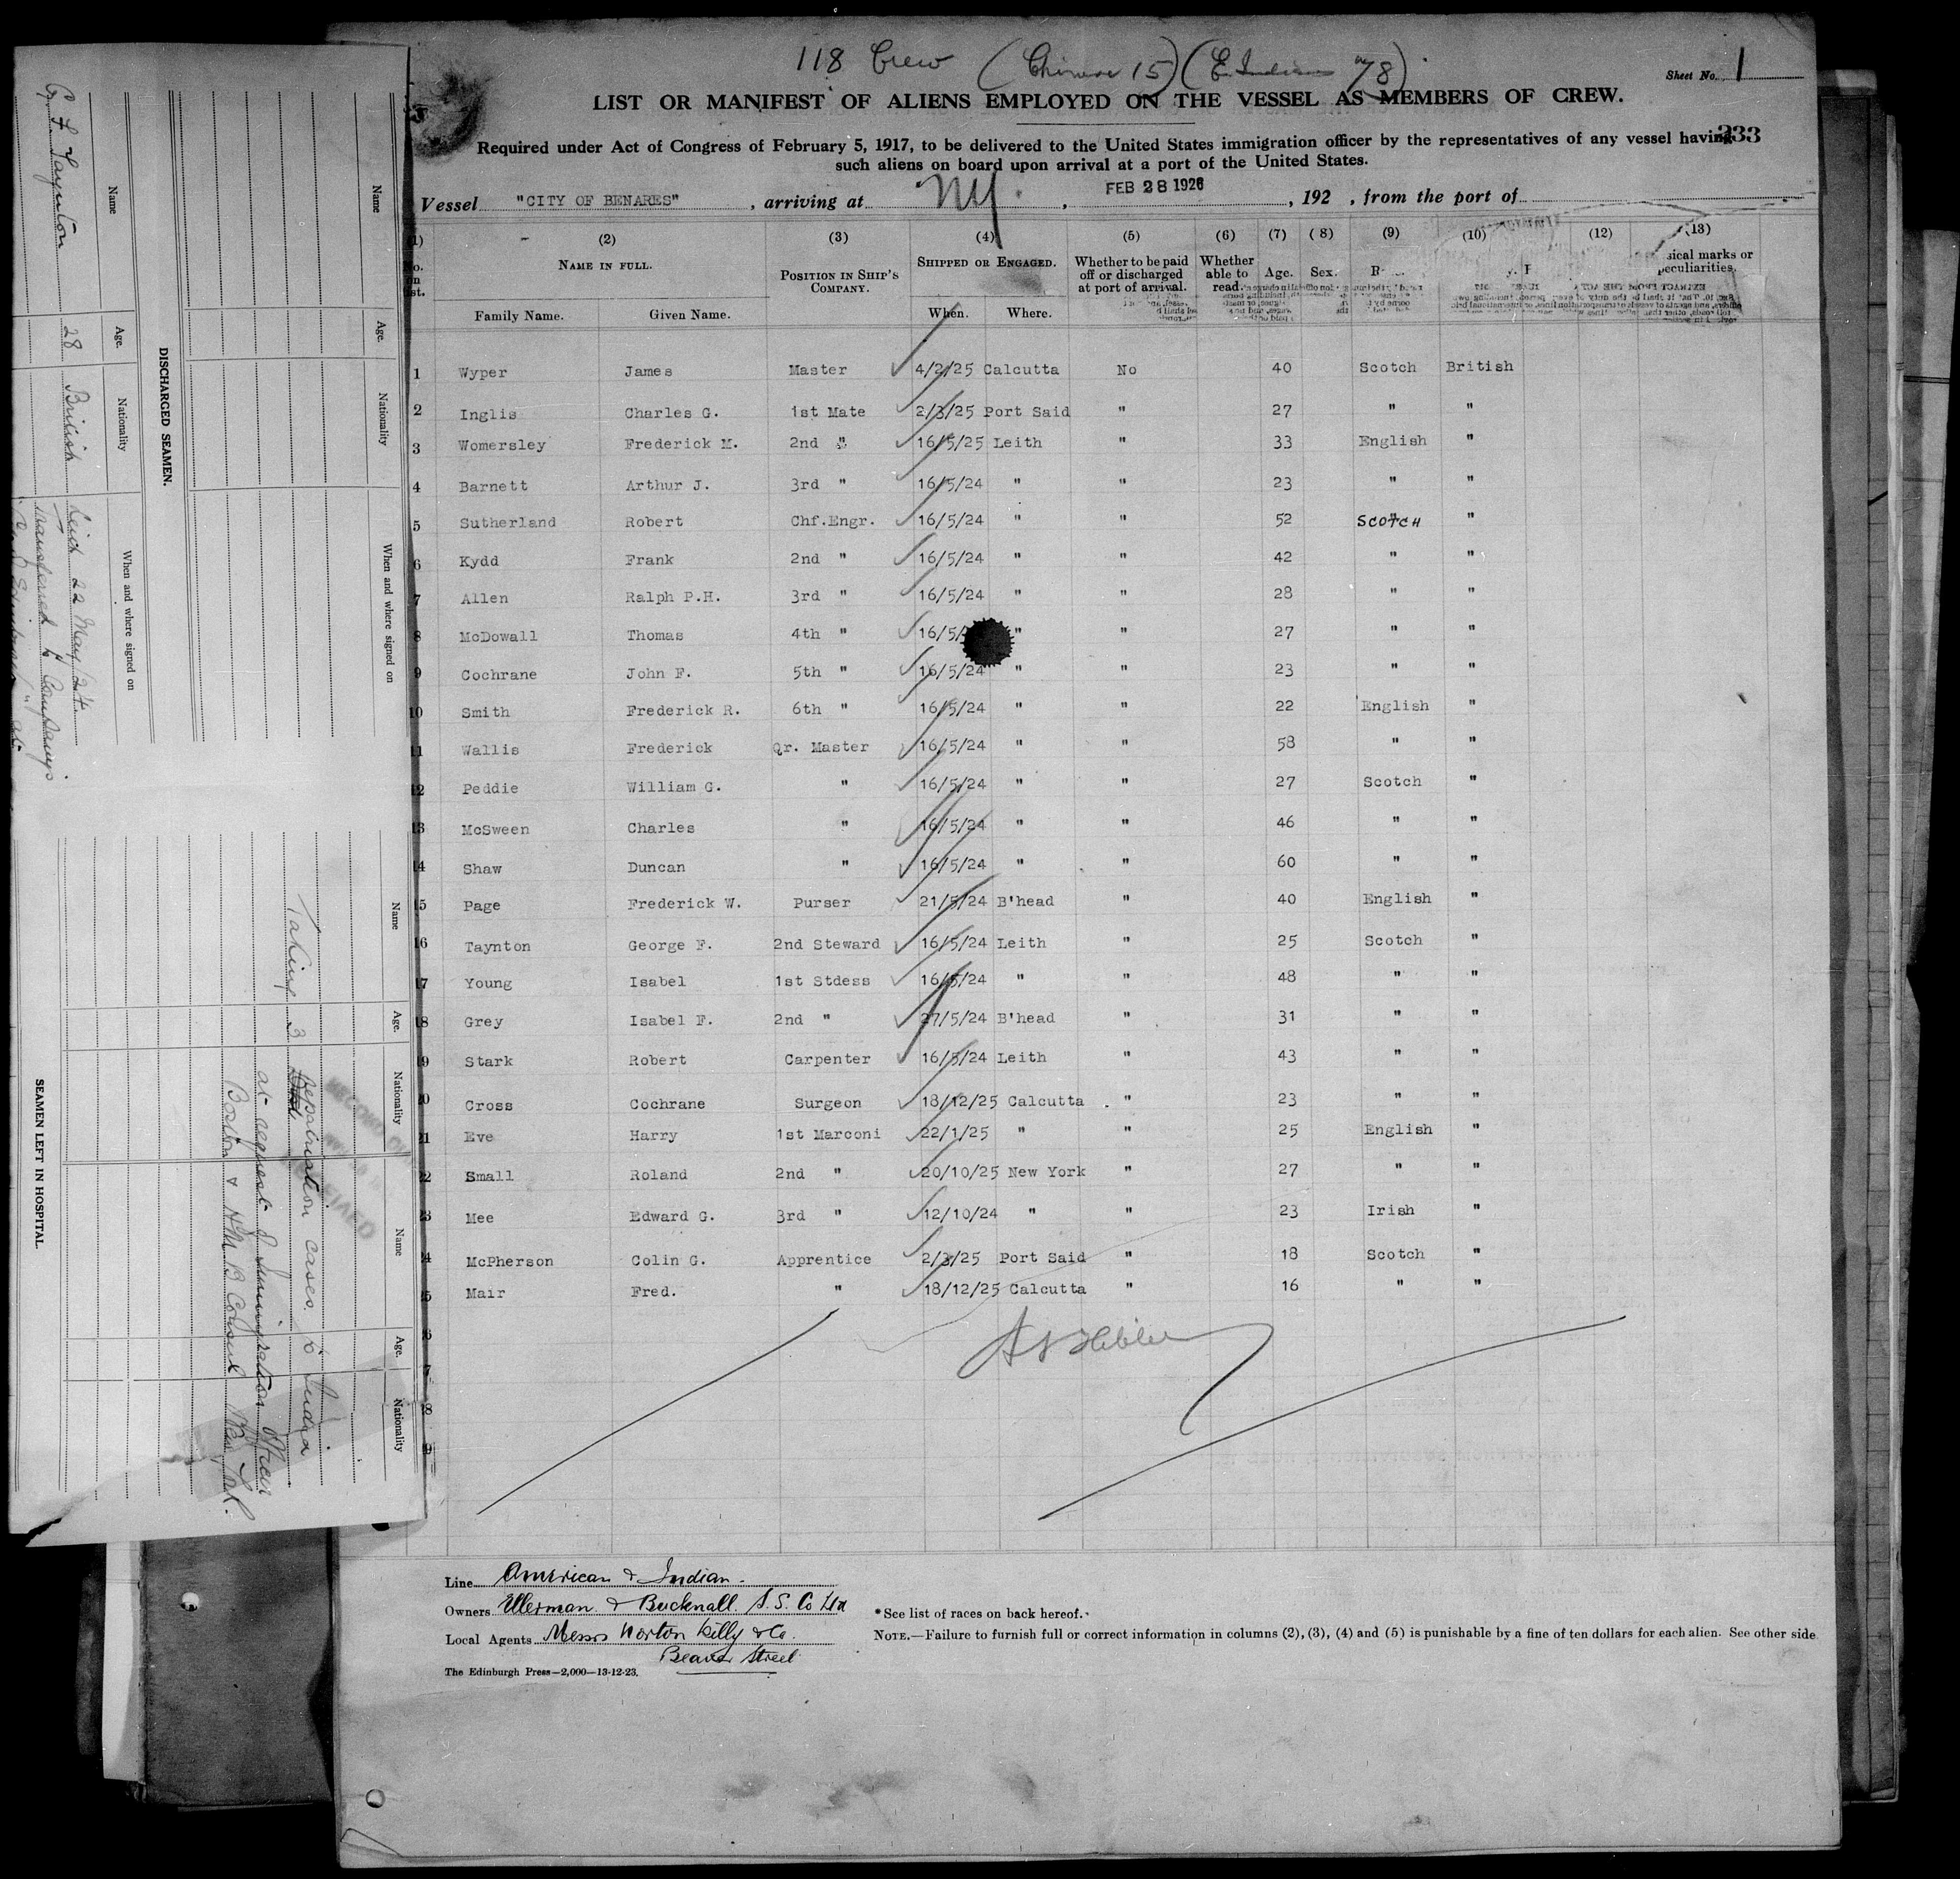 118 Crew (Chinese 15) (E. Indians 78)
Sheet No. 1
LIST OR MANIFEST OF ALIENS EMPLOYED ON THE VESSEL AS MEMBERS OF CREW.
233
Required under Act of Congress of February 5, 1917, to be delivered to the United States immigration officer by the representatives of any vessel having
such aliens on board upon arrival at a port of the United States.
Vessel "CITY OF BENARES", arriving at NY., FEB 28 1926, 192 , from the port of
(1) (2) (3) (4) (5) (6) (7) (8) (9) (10) (12) (13)
No. on list. NAME IN FULL. Family Name. Given Name. POSITION IN SHIP'S COMPANY. SHIPPED OR ENGAGED. When. Where. Whether to be paid off or discharged at port of arrival. Whether able to read. Age. Sex. peculiarities.
1 Wyper James Master 4/2/25 Calcutta No 40 Scotch British
2 Inglis Charles G. 1st Mate 2/3/25 Port Said " 27 " "
3 Womersley Frederick M. 2nd " 16/5/25 Leith " 33 English "
4 Barnett Arthur J. 3rd " 16/5/24 " " 23 " "
5 Sutherland Robert Chf.Engr. 16/5/24 " " 52 SCOTCH "
6 Kydd Frank 2nd " 16/5/24 " " 42 " "
7 Allen Ralph P.H. 3rd " 16/5/24 " " 28 " "
8 McDowall Thomas 4th " 16/5/ " " 27 " "
9 Cochrane John F. 5th " 16/5/24 " 23 " "
10 Smith Frederick R. 6th " 16/5/24 " " 22 English "
11 Wallis Frederick Qr. Master 16/5/24 " " 58 " "
12 Peddie William G. " 16/5/24 " " 27 Scotch "
13 McSween Charles " 16/5/24 " " 46 " "
14 Shaw Duncan " 16/5/24 " " 60 " "
15 Page Frederick W. Purser 21/5/24 B'head " 40 English "
16 Taynton George F. 2nd Steward 16/5/24 Leith " 25 Scotch "
17 Young Isabel 1st Stdess 16/5/24 " " 48 " "
18 Grey Isabel F. 2nd " 27/5/24 B'head " 31 " "
19 Stark Robert Carpenter 16/5/24 Leith " 43 " "
20 Cross Cochrane Surgeon 18/12/25 Calcutta " 23 " "
21 Eve Harry 1st Marconi 22/1/25 " " 25 English "
22 Small Roland 2nd " 20/10/25 New York " 27 " "
23 Mee Edward G. 3rd " 12/10/24 " " 23 Irish "
24 McPherson Colin G. Apprentice 2/3/25 Port Said " 18 Scotch "
25 Mair Fred. " 18/12/25 Calcutta " 16 " "
Line American & Indian.
Owners Ellerman & Bucknall. S.S. Co Ltd
Local Agents Messrs Norton Lilly & Co.
Beaver Street
The Edinburgh Press—2,000—13-12-23.
*See list of races on back hereof.
NOTE.—Failure to furnish full or correct information in columns (2), (3), (4) and (5) is punishable by a fine of ten dollars for each alien. See other side
DISCHARGED SEAMEN.
Name Age. Nationality When and where signed on
Name Age. Nationality When and where signed on
G. F. Taynton 28 British Leith 22 May/24.
transferred to Company's
SEAMEN LEFT IN HOSPITAL.
Name Age. Nationality Name Age. Nationality
Taking 3 repatriation cases to India
at request of Immigration Officer
Boston & HM B Consul New York.